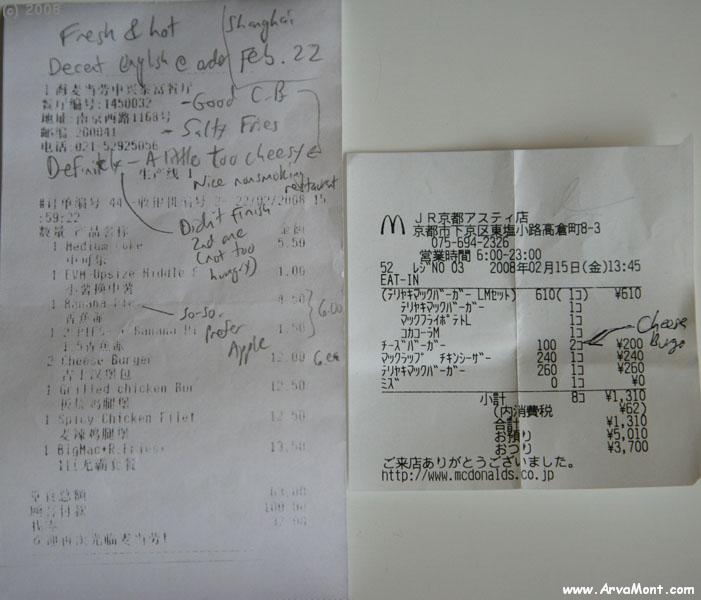 (c) 2008
Fresh & hot
Shanghai
Feb. 22
Decent English @
餐厅编号:1450032
- Good C.B
地址:南京西路1168号
- Salty Fries
邮编 200041
电话 021-52925056
Definitely - A little too cheesy
生产线 1
Nice nonsmoking restaurant
22/02/2008 15
:59:22
Didn't finish
2nd one
(not too
hungry)
数量 产品名称 金额
1 Medium Coke 5.50
中可乐
1 EVM-Upsize Middle F 1.00
小薯换中薯
1 Banana Pie 4.50
香蕉派
6.00
so-so.
Prefer
Apple
1.50
2 Cheese Burger 12.00
吉士汉堡包
6 ea
1 Grilled chicken Bur 12.50
板烧鸡腿堡
1 Spicy Chicken Filet 12.50
麦辣鸡腿堡
1 BigMac+R.Fries+ 13.50
巨无霸套餐
63.00
顾客付款 100.00
找零 37.00
欢迎再次光临麦当劳!
JR京都アスティ店
京都市下京区東塩小路高倉町8-3
075-694-2326
営業時間 6:00-23:00
52 レジNO 03 2008年02月15日(金)13:45
EAT-IN
(テリヤキマックバーガー LMセット) 610( 1コ) ¥610
テリヤキマックバーガー 1コ
マックフライポテトL 1コ
コカコーラM 1コ
Cheese
チーズバーガー 100 2コ ¥200
マックラップ チキンシーザー 240 1コ ¥240
テリヤキマックバーガー 260 1コ ¥260
ミズ 0 1コ ¥0
小計 8コ ¥1,310
(内消費税 ¥62)
合計 ¥1,310
お預り ¥5,010
おつり ¥3,700
ご来店ありがとうございました。
http://www.mcdonalds.co.jp
www.ArvaMont.com